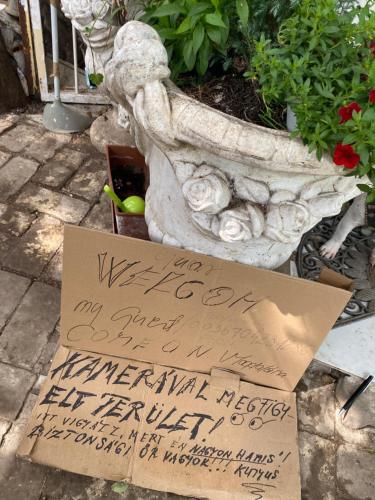 WELCOM
my Guest
COME ON
KAMERÁVAL MEGFIGY
ELT TERÜLET!
ITT VIGYÁZZ, MERT ÉN NAGYON HAMIS!
BIZTONSÁGI ŐR VAGYOK!!! KUTYUS